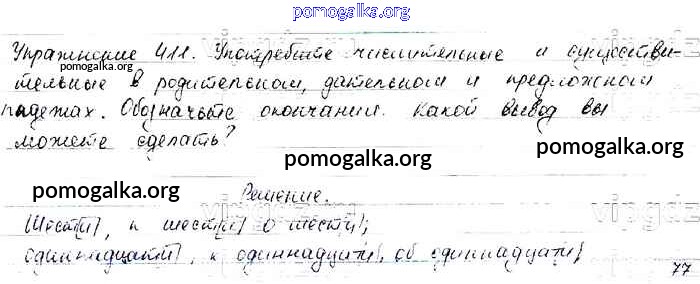 pomogalka.org
Упражнение 411. Употребите числительные и существи-
тельные в родительном, дательном и предложном
падежах. Обозначьте окончания. Какой вывод вы
можете сделать?
pomogalka.org
pomogalka.org
pomogalka.org
pomogalka.org
Решение.
Шест[и], к шест[и] о шест[и];
одиннадцат[и], к одиннадцати], об одиннадцати]
77